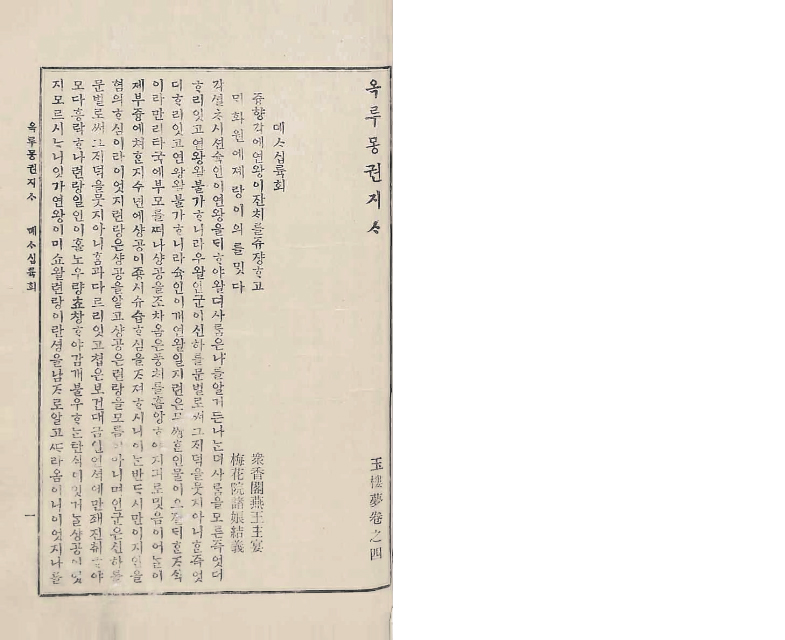 옥루몽권지ᄉ
玉樓夢卷之四
뎨ᄉ십륙회
즁향각에연왕이잔치를쥬쟝ᄒᆞ고 衆香閣燕王主宴
ᄆᆡ화원에제랑이의를ᄆᆡᆺ다 梅花院諸娘結義
각셜ᄎᆞ시션슉인이연왕을ᄃᆡᄒᆞ야왈뎌사ᄅᆞᆷ은나를알거든나ᄂᆞᆫ뎌사ᄅᆞᆷ을모른즉엇더
ᄒᆞ리잇고연왕왈불가ᄒᆞ니라우왈인군이신하를문벌로써그저덕을뭇지아니ᄒᆞᆫ즉엇
더ᄒᆞ리잇고연왕왈불가ᄒᆞ니라슉인이개연왈일지련은 인물이오
이라만리타국에부모를ᄯᅥ나샹공을조차옴은풍ᄎᆡ를흠앙ᄒᆞ야지긔로밋음이어늘이
제부즁에쳐ᄒᆞᆫ지수년에샹공이죵시슈습ᄒᆞ심을ᄌᆞ져ᄒᆞ시니이ᄂᆞᆫ반ᄃᆞ시만이지인을
혐의ᄒᆞ심이라이엇지련랑은샹공을알고샹공은련랑을모름이아니며인군은신하를
문벌로써그저덕을뭇지아니ᄒᆞᆷ과다르리잇고쳡은보건대금일연셕에만좌진취ᄒᆞ야
모다흥락ᄒᆞ나련랑일인이홀노우량쵸창ᄒᆞ야감개불우ᄒᆞᄂᆞᆫ탄식이잇거늘샹공이엇
지모르시ᄂᆞ니잇가연왕이미쇼왈련랑이란셩을남ᄌᆞ로알고ᄯᅡ라옴이니이엇지나를
옥루몽권지ᄉ 뎨ᄉ십륙회 一